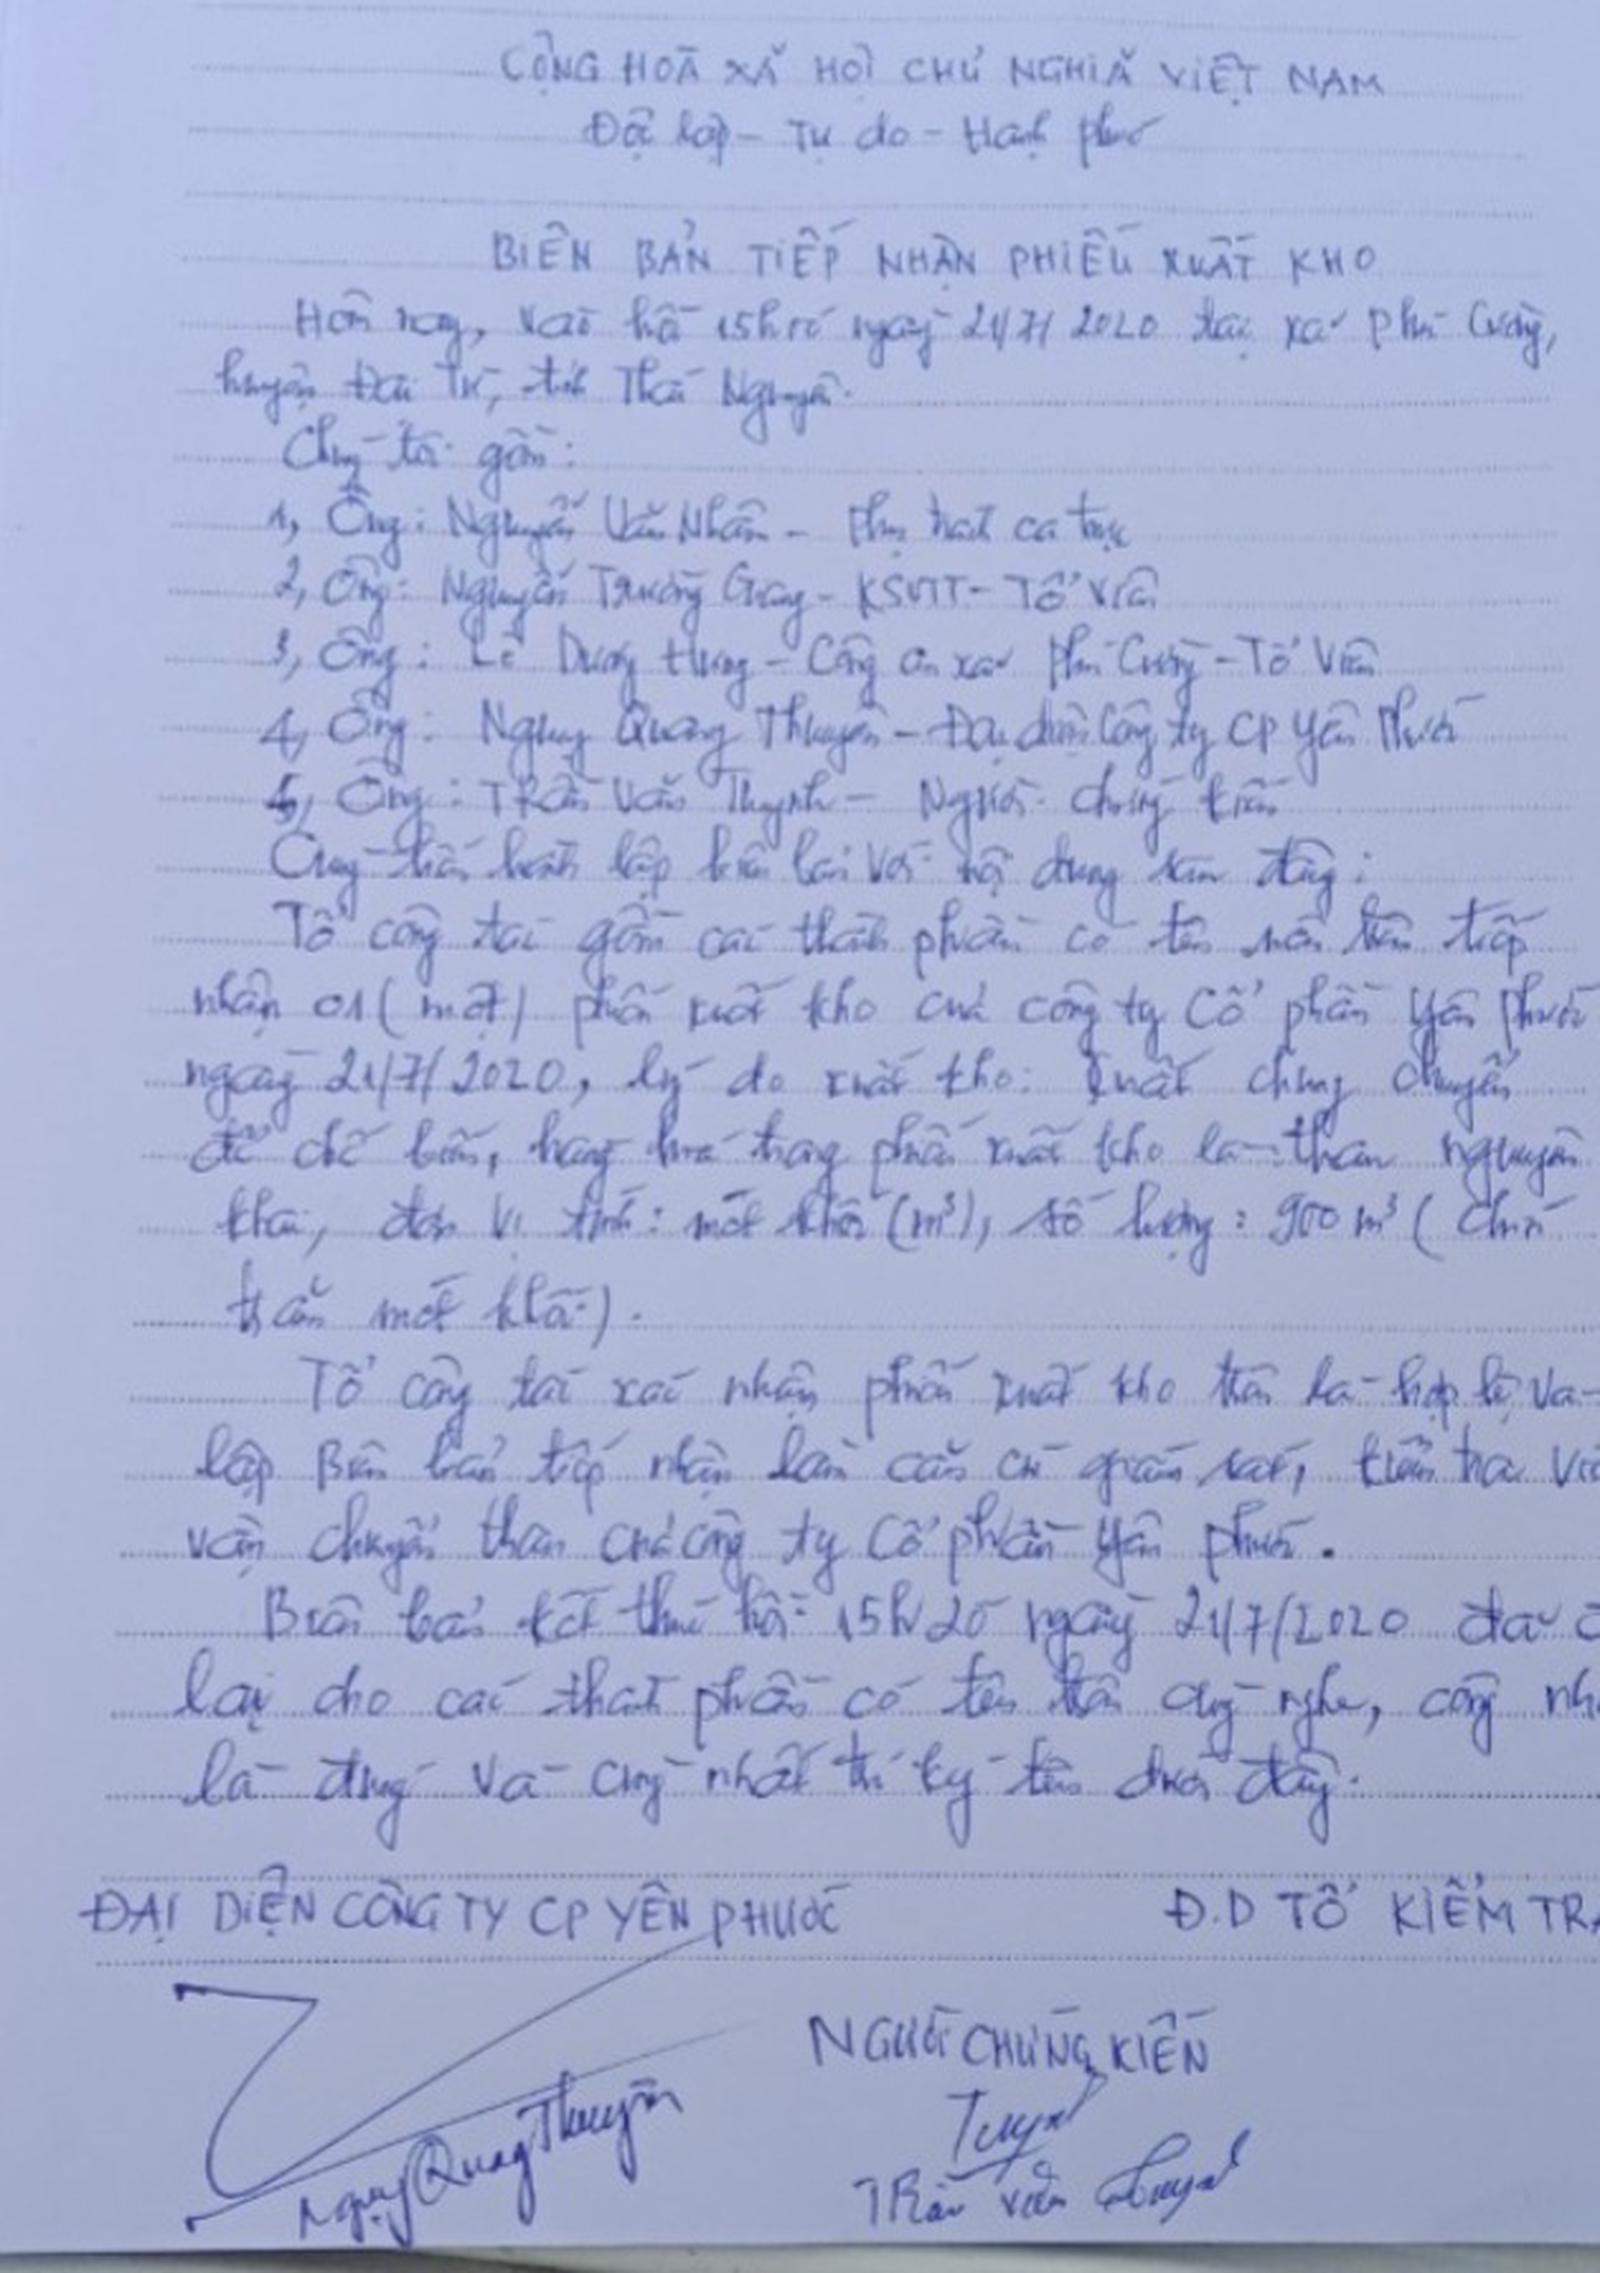 CỘNG HOÀ XÃ HỘI CHỦ NGHĨA VIỆT NAM
Độc lập - Tự do - Hạnh phúc
BIÊN BẢN TIẾP NHẬN PHIẾU XUẤT KHO
Hôm nay, vào hồi 15h ngày 21/7/2020 tại xã Phú Cường,
huyện Đại Từ, tỉnh Thái Nguyên.
Chúng tôi gồm:
1, Ông: Nguyễn Văn Nhân - Phụ trách ca trực
2, Ông: Nguyễn Trường Giang - KSVTT - Tổ viên
3, Ông: Lê Dương Hưng - Công an xã Phú Cường - Tổ viên
4, Ông: Ngụy Quang Thuyên - Đại diện Công ty CP Yên Phước
5, Ông: Trần Văn - Người chứng kiến
Cùng tiến hành lập biên bản với nội dung sau đây:
Tổ công tác gồm các thành phần có tên nêu trên tiếp
nhận 01 (một) phiếu xuất kho của công ty Cổ phần Yên Phước
ngày 21/7/2020, lý do xuất kho: Xuất chung chuyển
để chế biến, hàng hoá trong phiếu xuất kho là than nguyên
khai, đơn vị tính: mét khối (m³), số lượng: 900 m³ (Chín
trăm mét khối).
Tổ công tác xác nhận phiếu xuất kho trên là hợp lệ và
lập Biên bản tiếp nhận làm căn cứ giám sát, kiểm tra
vận chuyển than của công ty Cổ phần Yên Phước.
Biên bản kết thúc hồi 15h20 ngày 21/7/2020 đã
lại cho các thành phần có tên trên cùng nghe, công
là đúng và cùng nhất trí ký tên dưới đây.
ĐẠI DIỆN CÔNG TY CP YÊN PHƯỚC Đ.D TỔ KIỂM TRA
NGƯỜI CHỨNG KIẾN
Ngụy Quang Thuyên
Trần Văn